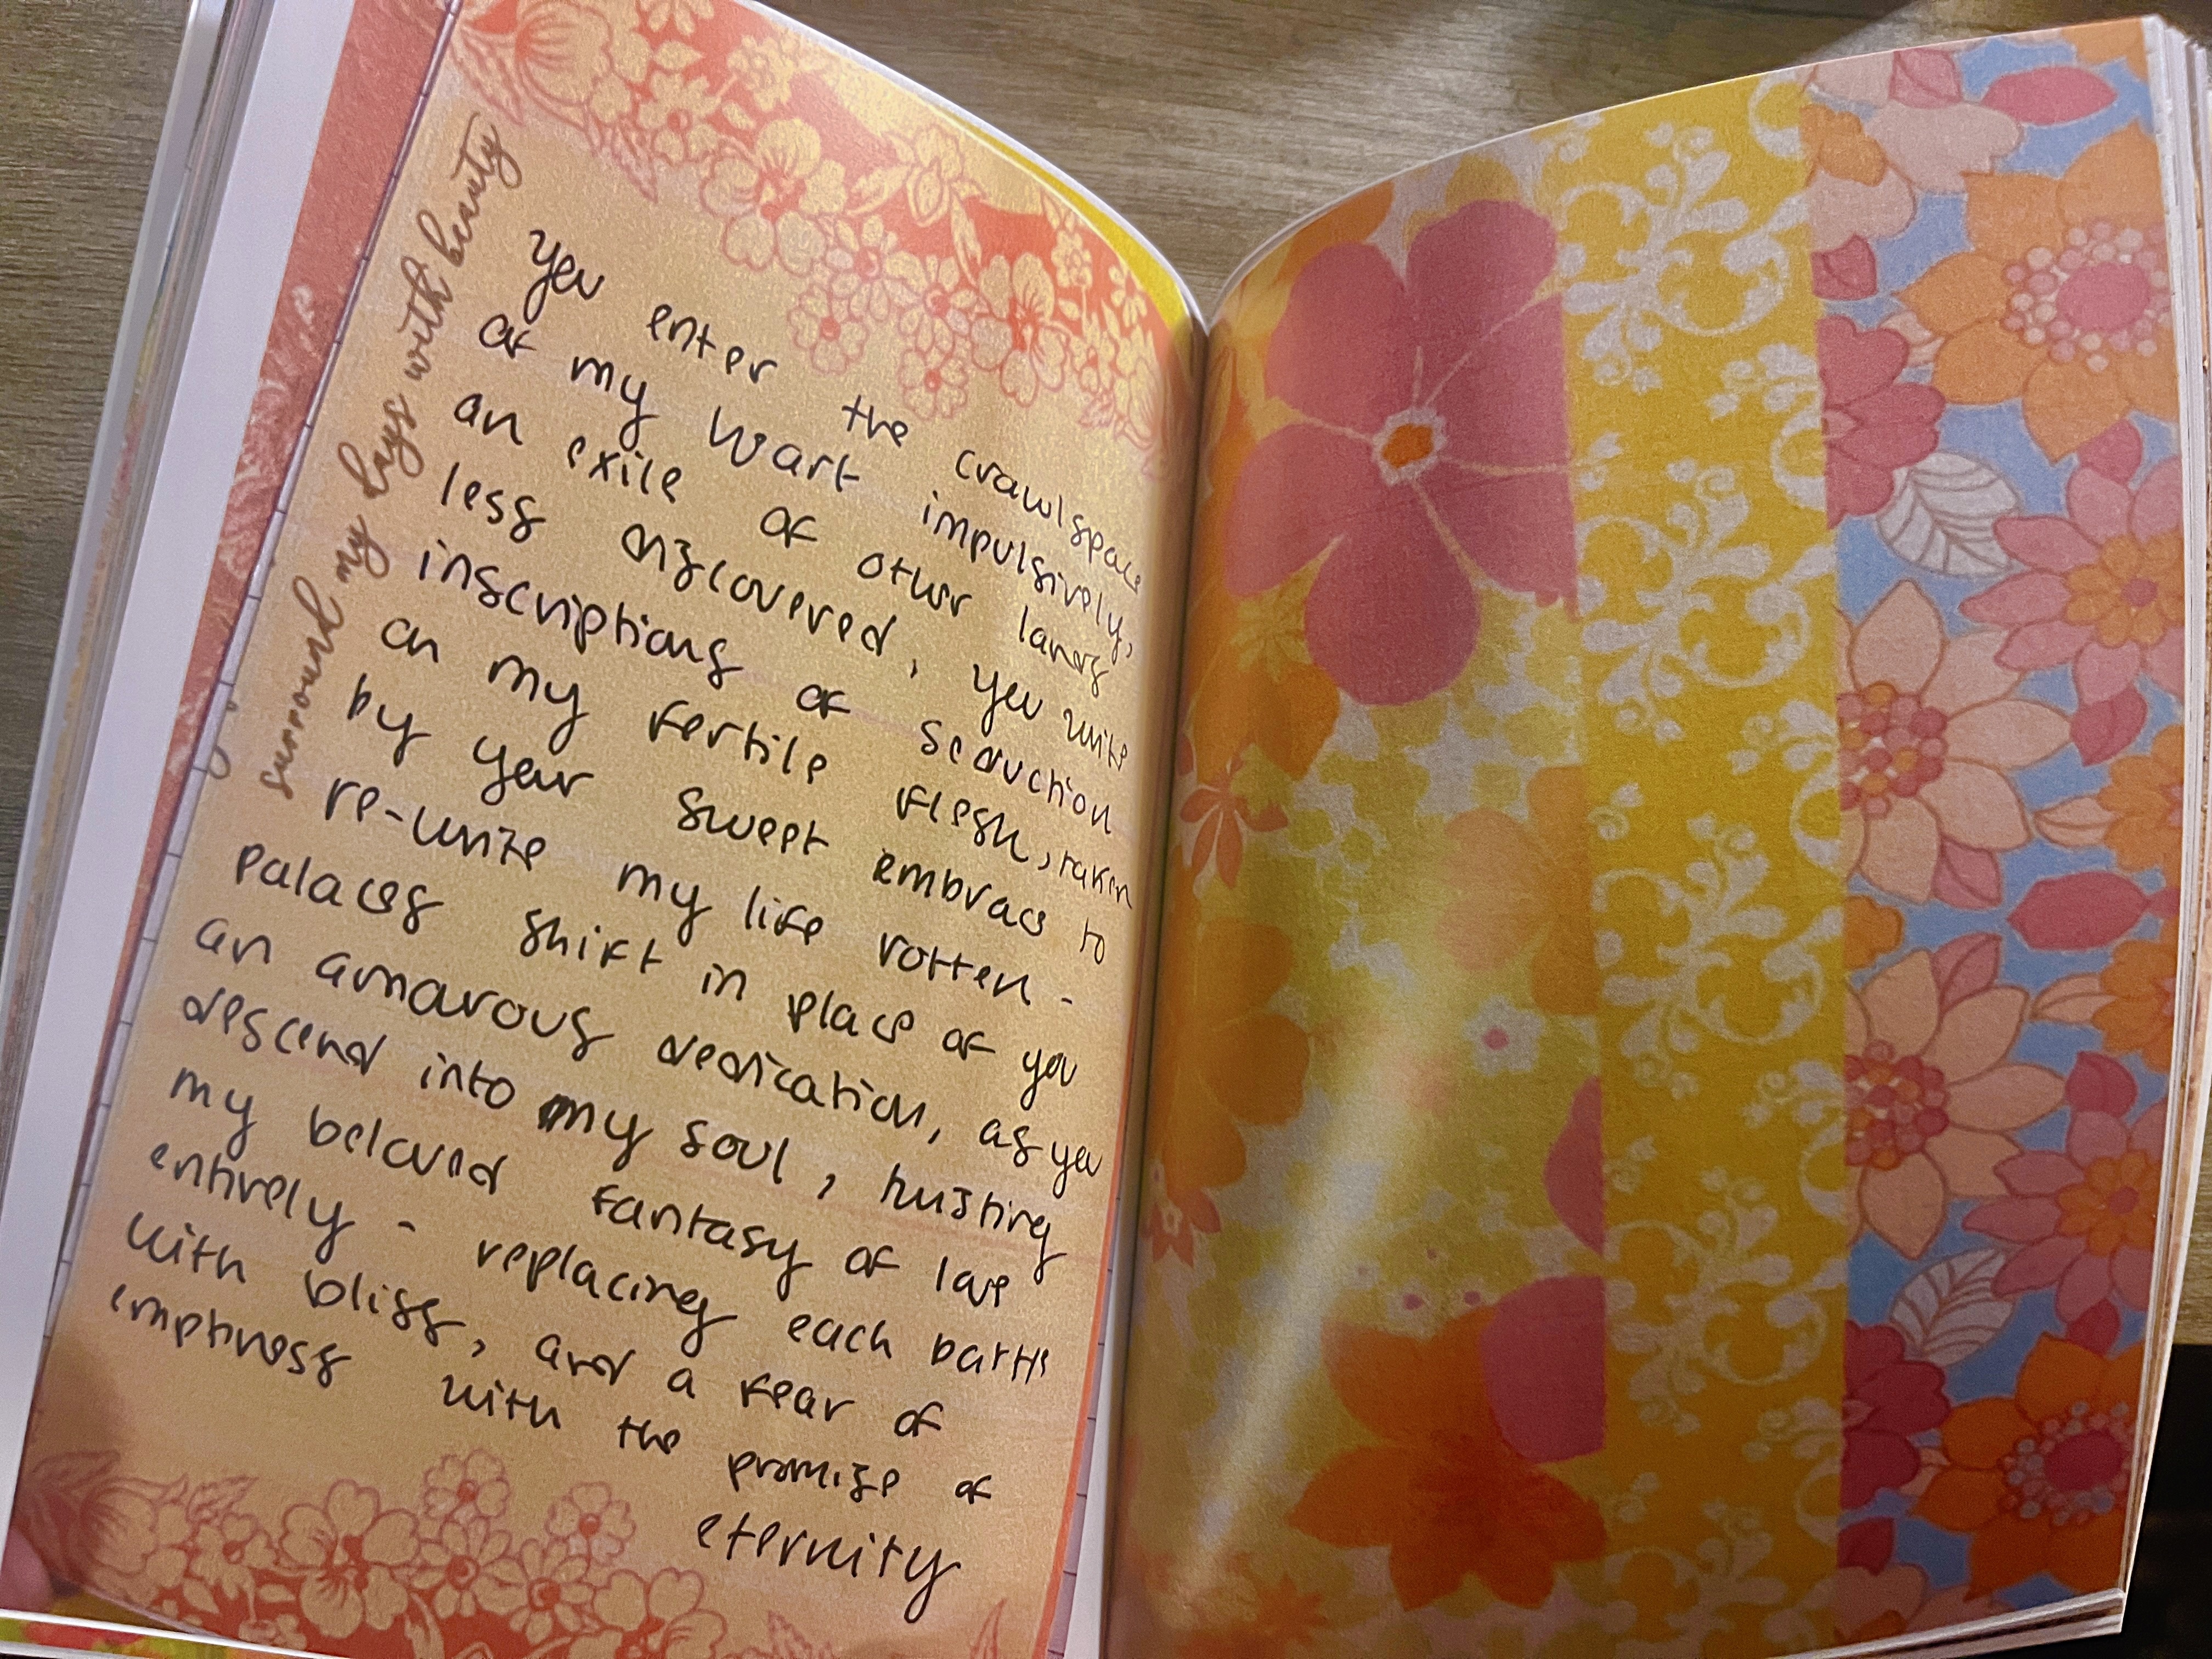 surround my days with beauty
you enter the crawlspace
of my heart impulsively,
an exile of other lands
less discovered, you write
inscriptions of seduction
on my fertile flesh, taken
by your sweet embrace to
re-write my life rotten -
palaces shift in place of you
an amorous dedication, as you
descend into my soul, twisting
my beloved fantasy of love
entirely - replacing each battle
with bliss, and a fear of
emptiness with the promise of
eternity